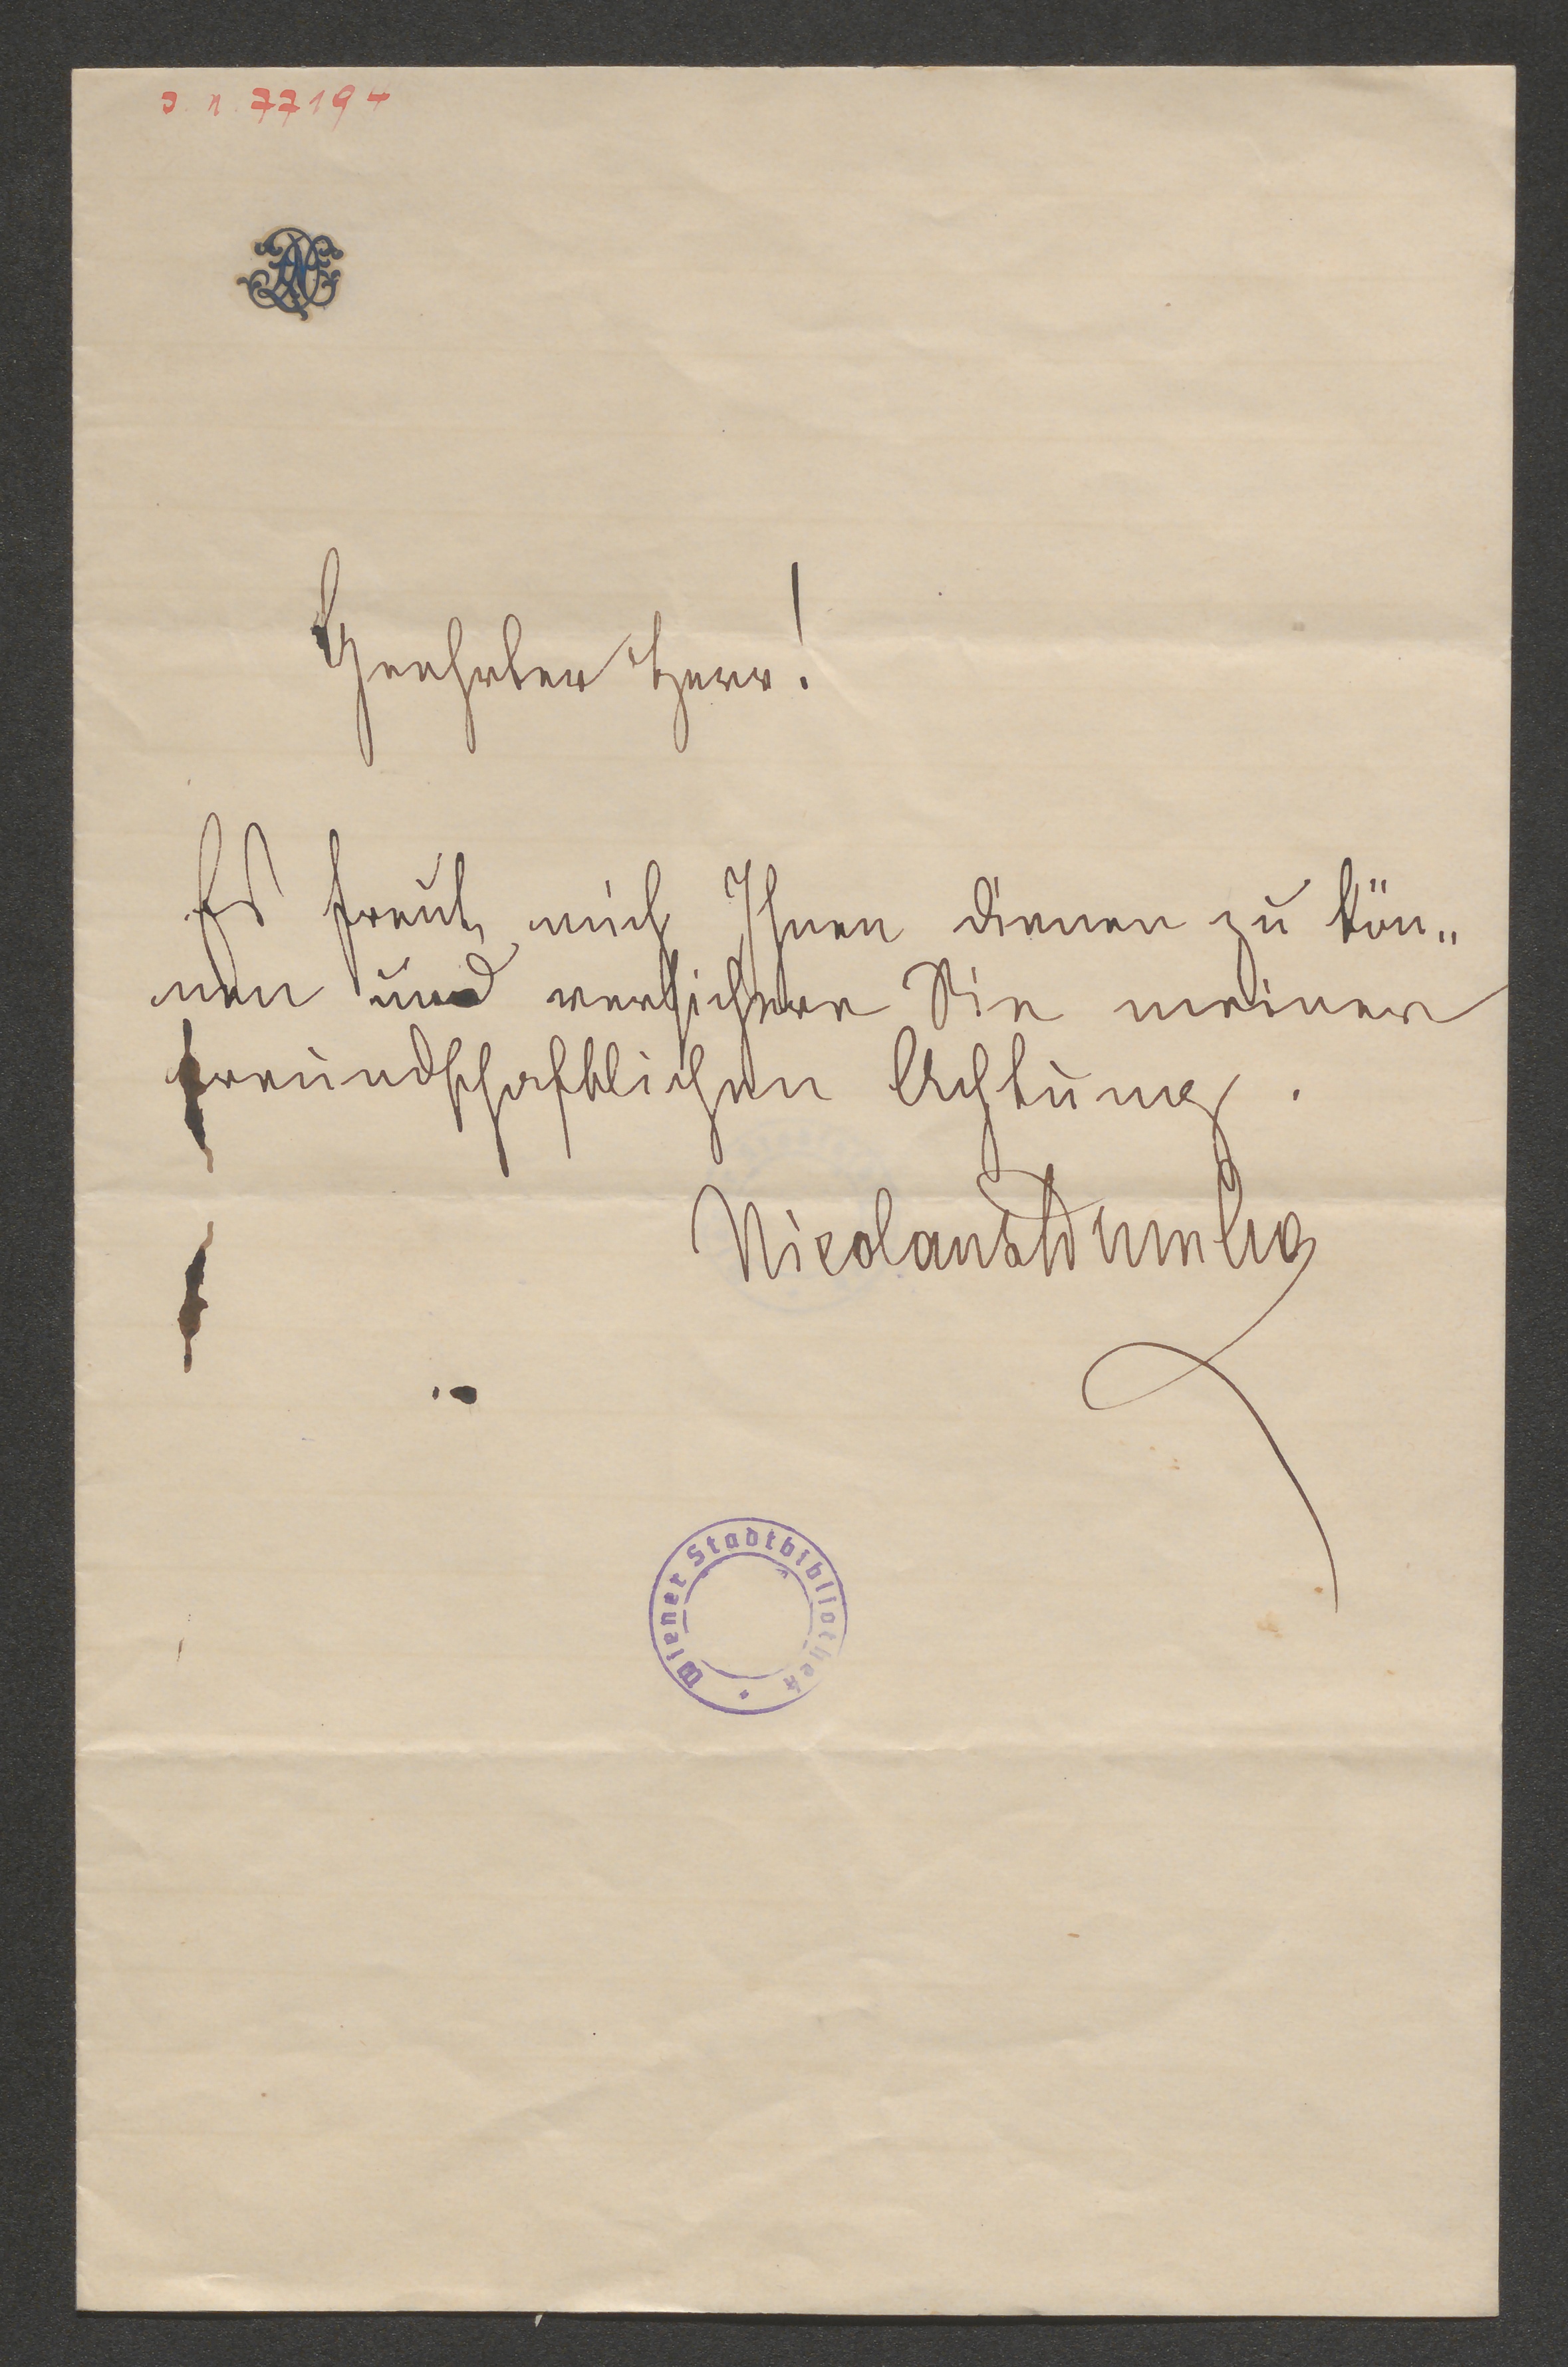 J. N. 77194
ND
Geehrter Herr!
Es freut mich Ihnen dienen zu kön„
nen und versichere Sie meiner
freundschaftlichen Achtung.
Nicolaus Dumba
Wiener Stadtbibliothek